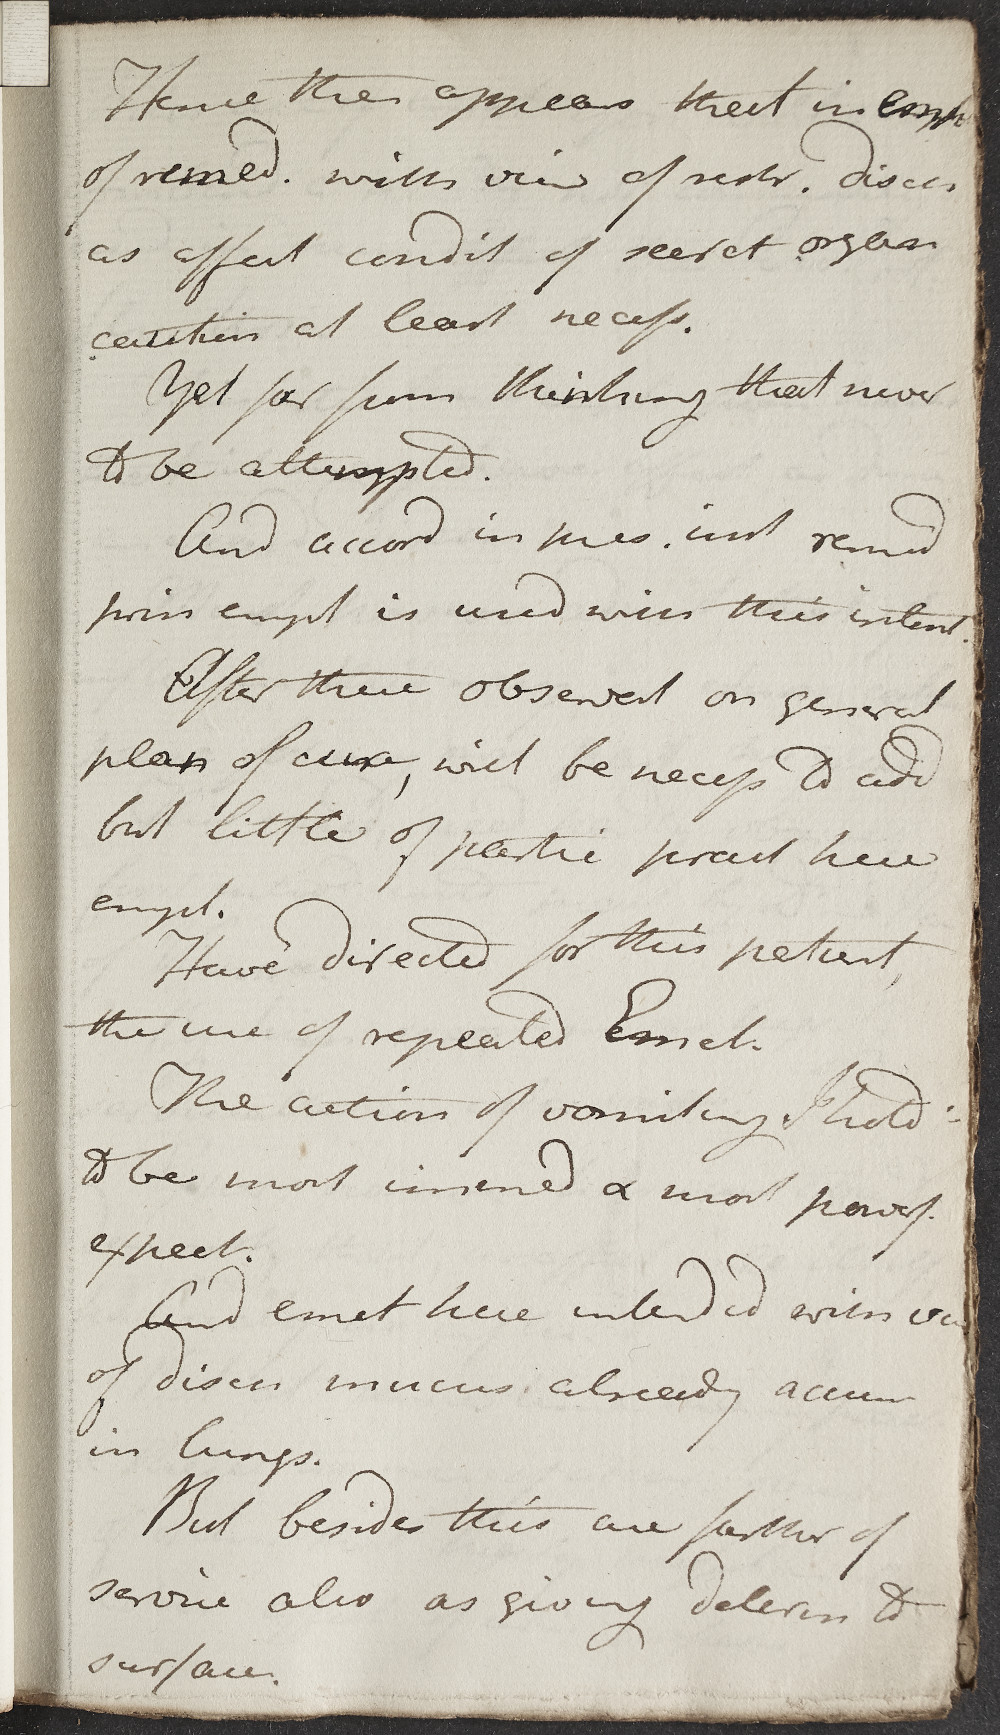 Hence then appears that in empl
of remed. with view of restr. disch
as affect condit of secret organ
caution at least necess.
Yet far from thinking that never
to be attempted.
And accord in pres. inst remed
prin empl is used with this intent.
After these observat on general
plan of cure, will be necess to add
but little of partic pract here
empl.
Have directed for this patient,
the use of repeated Emet.
The action of vomiting I hold
to be most immed & most powerf.
expect.
And emet here intended with view
of disch mucus already accum
in lungs.
But besides this are farther of
service also as giving determ to
surface.